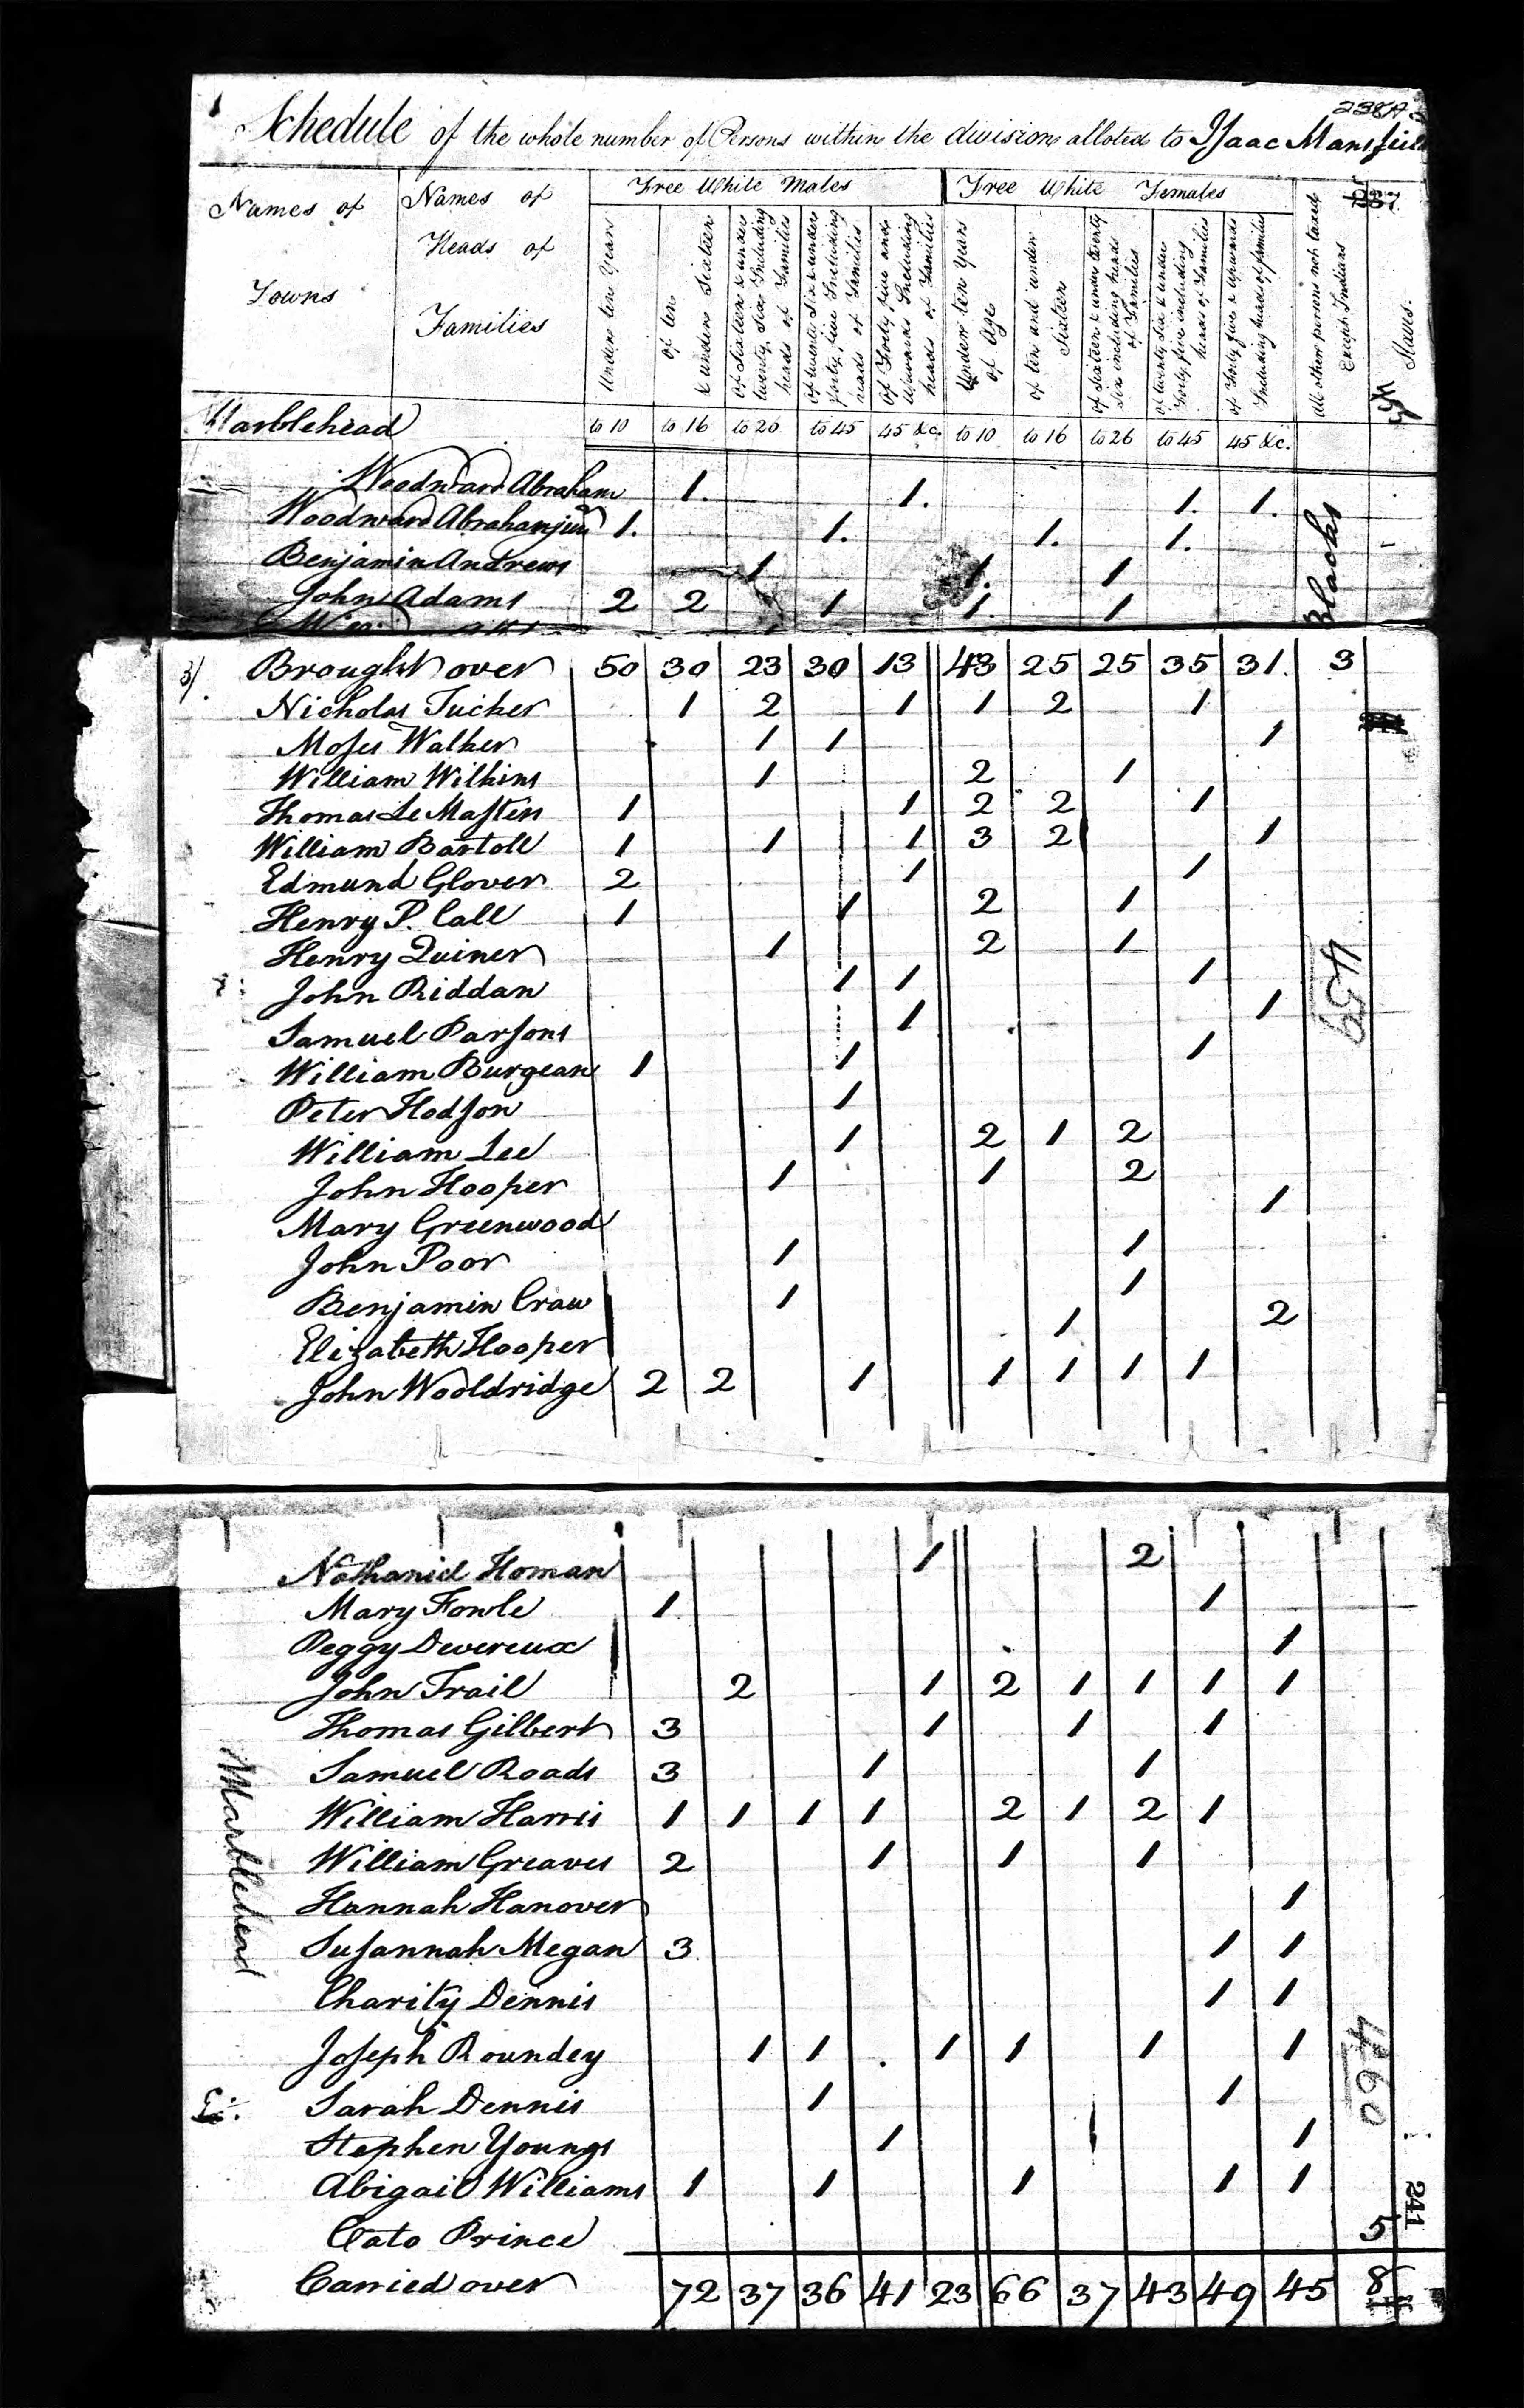 238A
Schedule of the whole number of Persons within the division alloted to Isaac Mansfield
Names of Towns
Names of Heads of Families
Free White Males
Free White Females
Under ten Years
of ten & under Sixteen
of Sixteen & under twenty Six Including heads of Families
of twenty Six & under forty five Including heads of Families
of Forty five and upwards Including heads of Families
Under ten Years of Age
of ten and under Sixteen
of Sixteen & under twenty Six including heads of Families
of twenty Six & under forty five including heads of Families
of Forty five & upwards Including heads of families
all other persons not taxed Except Indians
Slaves.
Marblehead
to 10 to 16 to 26 to 45 45 &c. to 10 to 16 to 26 to 45 45 &c.
Woodward Abraham 1. 1. 1. 1.
Woodward Abraham jun 1. 1. 1. 1.
Benjamin Andrews 1 1. 1
John Adams 2 2 1 1. 1
Blacks
3/. Brought over 50 30 23 30 13 43 25 25 35 31. 3
Nicholas Tucker 1 2 1 1 2 1
Moses Walker 1 1 1
William Wilkins 1 2 1
Thomas Le Masters 1 1 2 2 1
William Bartoll 1 1 1 3 2 1
Edmund Glover 2 1 1
Henry P. Call 1 1 2 1
Henry Quiner 1 2 1
John Riddan 1 1 1
Samuel Parsons 1 1
William Burgean 1 1 1
Peter Hodson 1
William Lee 1 2 1 2
John Hooper 1 1 2
Mary Greenwood 1
John Poor 1 1
Benjamin Craw 1 1
Elizabeth Hooper 1 2
John Wooldridge 2 2 1 1 1 1 1
459
Nathaniel Homan 1 2
Mary Fowle 1 1
Peggy Devereux 1
John Trail 2 1 2 1 1 1 1
Thomas Gilbert 3 1 1 1
Samuel Roads 3 1 1
William Harris 1 1 1 1 2 1 2 1
William Greaves 2 1 1 1
Hannah Hanover 1
Susannah Megan 3 1 1
Charity Dennis 1 1
Joseph Roundey 1 1 1 1 1 1
Sarah Dennis 1 1
Stephen Youngs 1 1 1
Abigail Williams 1 1 1 1 1
Cato Prince 5
Carried over 72 37 36 41 23 66 37 43 49 45 8
Marblehead
460
241